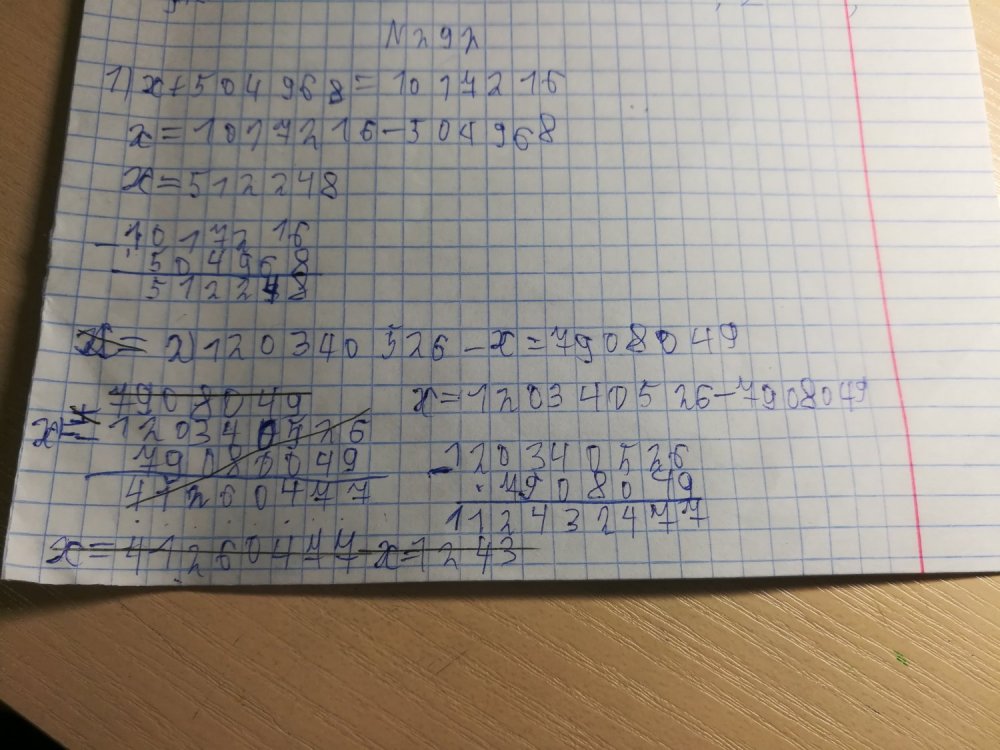 N292
1) x+504968=1017216
x=1017216-504968
x=512248
-1017216
504968
512248
x= 2) 120340526-x=7908049
7908049 x=120340526-7908049
120340726
79080049
41260477
-120340526
7908049
112432477
x=41260477 x=1243